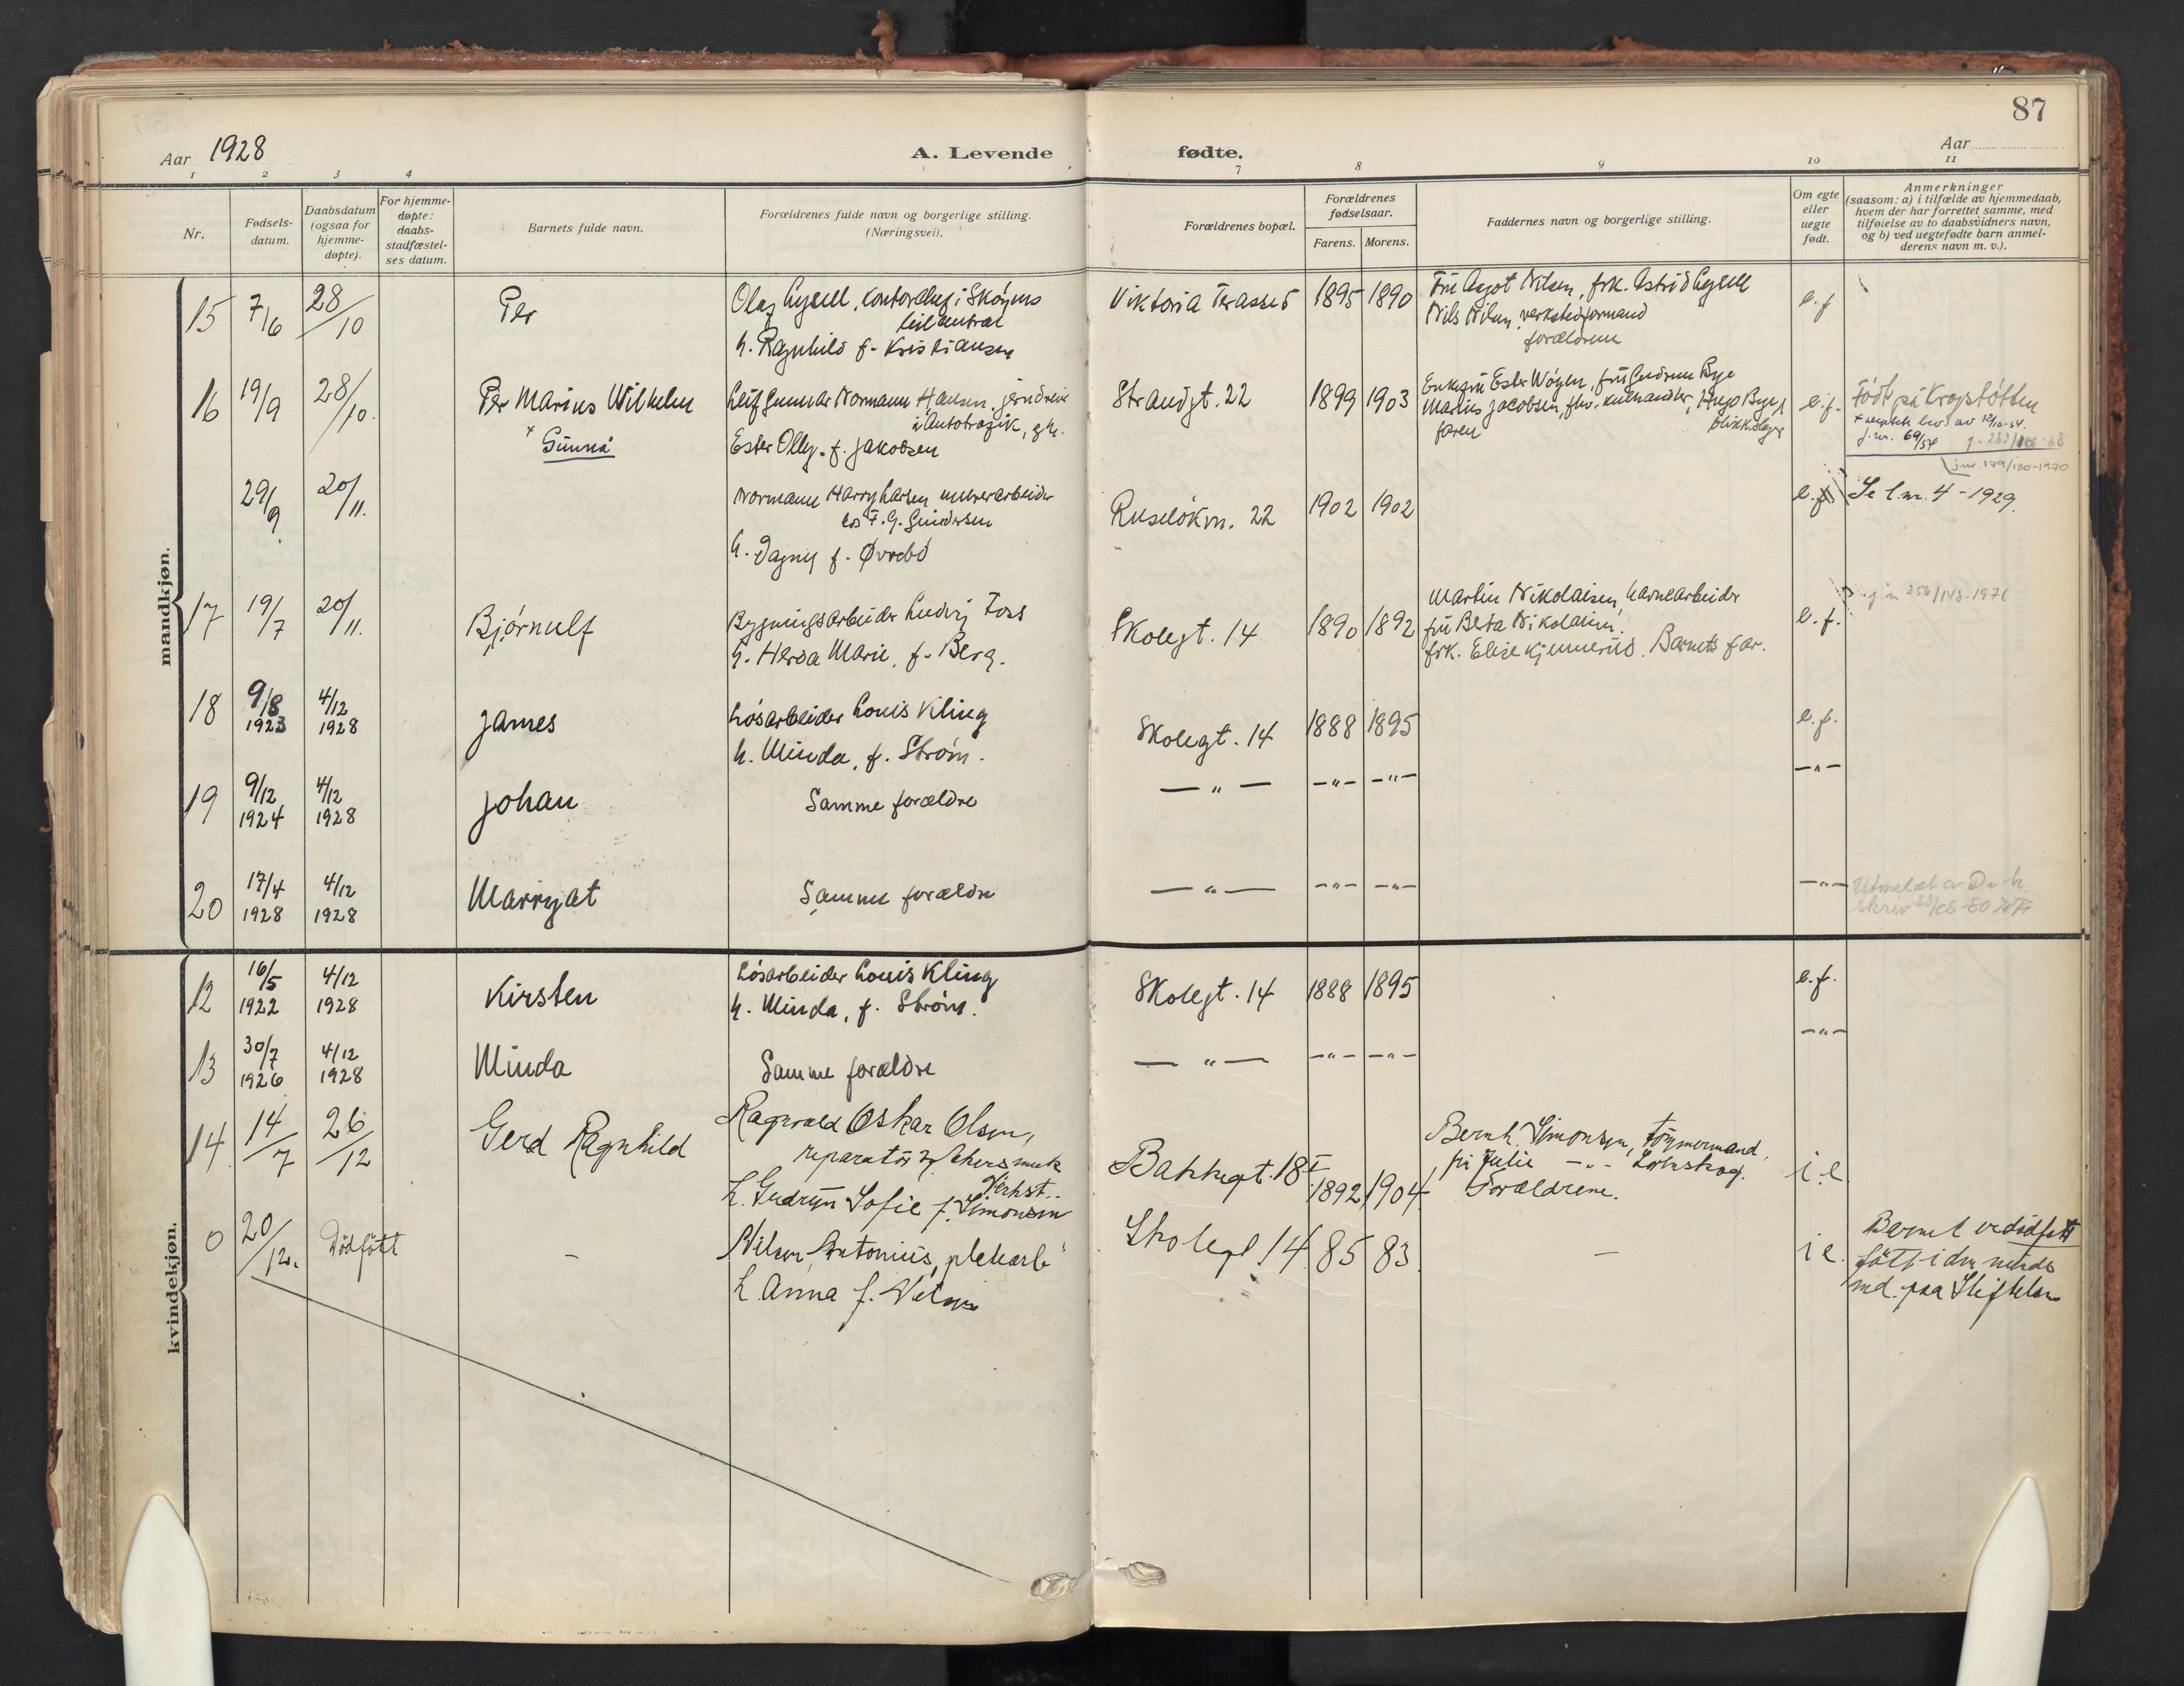 87
Aar 1928
A. Levende fødte.
Aar
1 2 3 4 7 8 9 10 11
Nr.
Fødsels-
datum.
Daabsdatum
(ogsaa for
hjemme-
døpte).
For hjemme-
døpte:
daabs-
stadfæstel-
ses datum.
Barnets fulde navn.
Forældrenes fulde navn og borgerlige stilling.
(Næringsvei).
Forældrenes bopæl.
Forældrenes
fødselsaar.
Farens. Morens.
Faddernes navn og borgerlige stilling.
Om egte
eller
uegte
født.
Anmerkninger
(saasom: a) i tilfælde av hjemmedaab,
hvem der har forrettet samme, med
tilføielse av to daabsvidners navn,
og b) ved uegtefødte barn anmel-
derens navn m. v.).
mandkjøn.
15 7/6 28/10 Per
Olaf Lysell, kontorchef i Skøyens
h. Ragnhild f. Kristiansen
Viktoria Terasse 5 1895 1890
Fru Aagot Nilsen, frk. Astrid Lysell
Nils Nilsen, verkstedformand
forældrene
e.f
16 19/9 28/10. Per Marius Wilhelm
+ Gunnar
Leif Gunnar Normann Hansen, jerndreier
Ester Olly. f. Jakobsen
Strandgt. 22 1899 1903
Enkefru Ester Wøyen, fru Gudrun Bye
Marius Jacobsen, fhv. kulhandler, Hugo Bye,
faren blikkslager
e.f.
Født på Krogstøtten
j.nr. 69/54
j.nr. 179/130-1970
29/9 20/11.
Normann Harry Larsen murerarbeider
hos F. G. Gundersen
h. Dagny f. Øvrebø
Ruseløkvn. 22 1902 1902
e.f.
Se l.nr. 4 - 1929.
17 19/7 20/11. Bjørnulf
Bygningsarbeider Ludvig Foss
h. Herda Marie, f. Berg.
Skolegt. 14 1890 1892
Martin Nikolaisen, havnearbeider
fru Berta Nikolaisen.
frk. Elise Kjennerud. Barnets far.
e.f.
18 9/8 4/12
1923 1928 James
Løsarbeider Louis Kling
h. Minda, f. Strøm.
Skolegt. 14 1888 1895
e.f.
19 9/12 4/12
1924 1928 Johan
Samme forældre
— " — -"- -"- -"-
20 17/4 4/12
1928 1928 Marryat
Samme forældre
— " — -"- -"- -"-
kvindekjøn.
12 16/5 4/12
1922 1928 Kirsten
Løsarbeider Louis Kling
h. Minda, f. Strøm.
Skolegt. 14 1888 1895
e.f.
13 30/7 4/12
1926 1928 Minda
Samme forældre
— " — -"- -"- -"-
14 14/7 26/12 Gerd Ragnhild
Ragnvald Oskar Olsen,
reparatør v/ Akers mek
Verkst..
h. Gudrun Sofie f. Simonsen
Bakkegt. 18 I 1892 1904
Bernh. Simonsen, tømmermand,
fru Julie -"- Lørenskog.
Forældrene.
i.e
0 20/12. Dødfött -
Nilsen, Antonius, pladsarb
h. Anna f. Nilsen
Skolegt 14 85 83 -
i e.
Barnet er dødfött
født i den niende
md. paa Stiftelsen